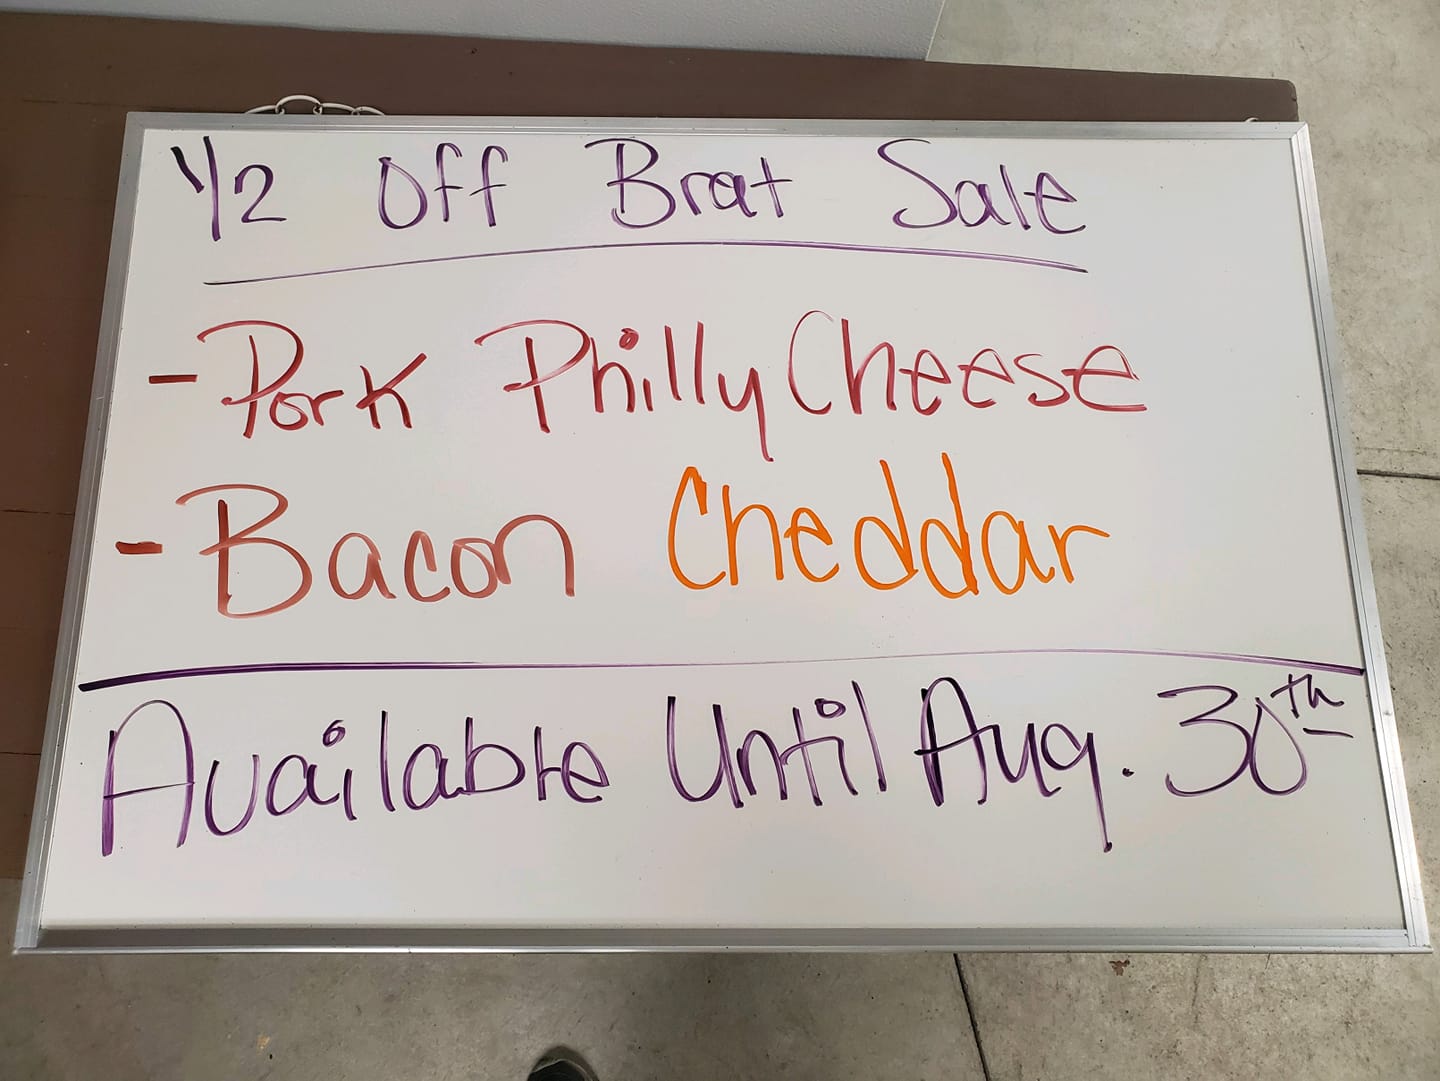 1/2 Off Brat Sale
- Pork Philly Cheese
- Bacon Cheddar
Available Until Aug. 30th